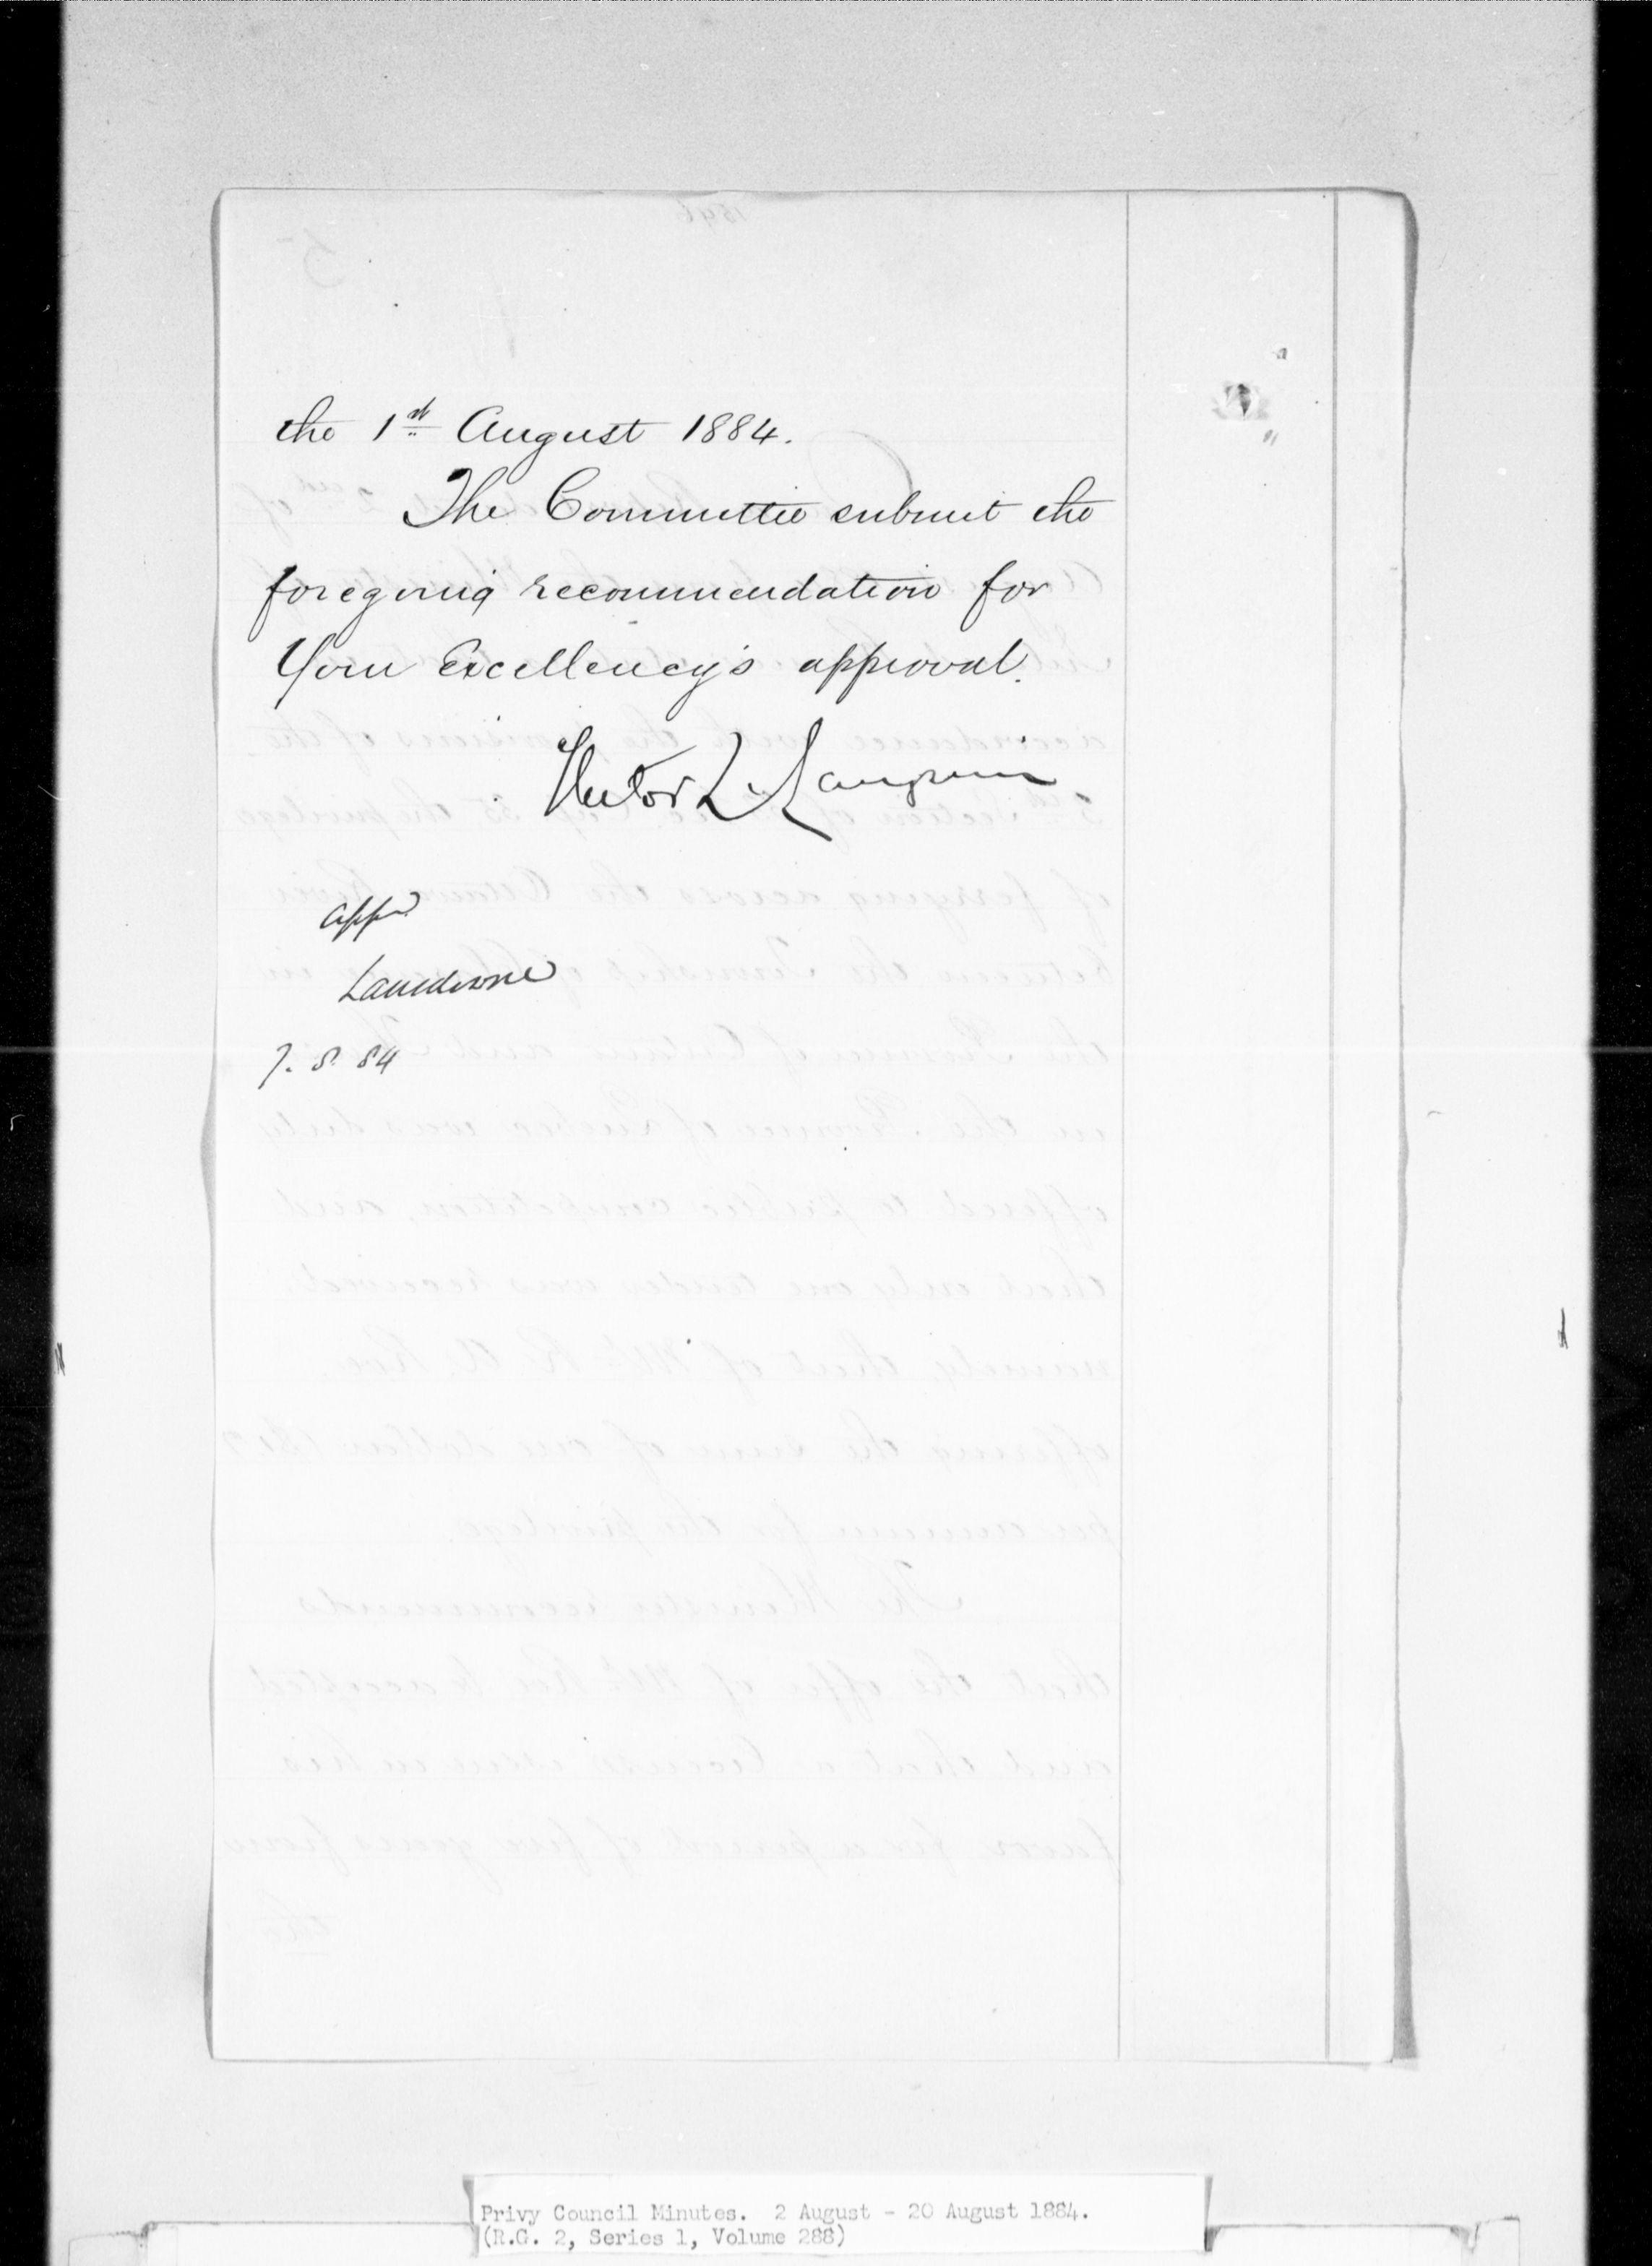 the 1st August 1884.
The Committee submit the
foregoing recommendation for
Your Excellency's approval.
Hector L. Langevin
appd
Lansdowne
7. 8. 84
Privy Council Minutes. 2 August - 20 August 1884.
(R.G. 2, Series 1, Volume 288)